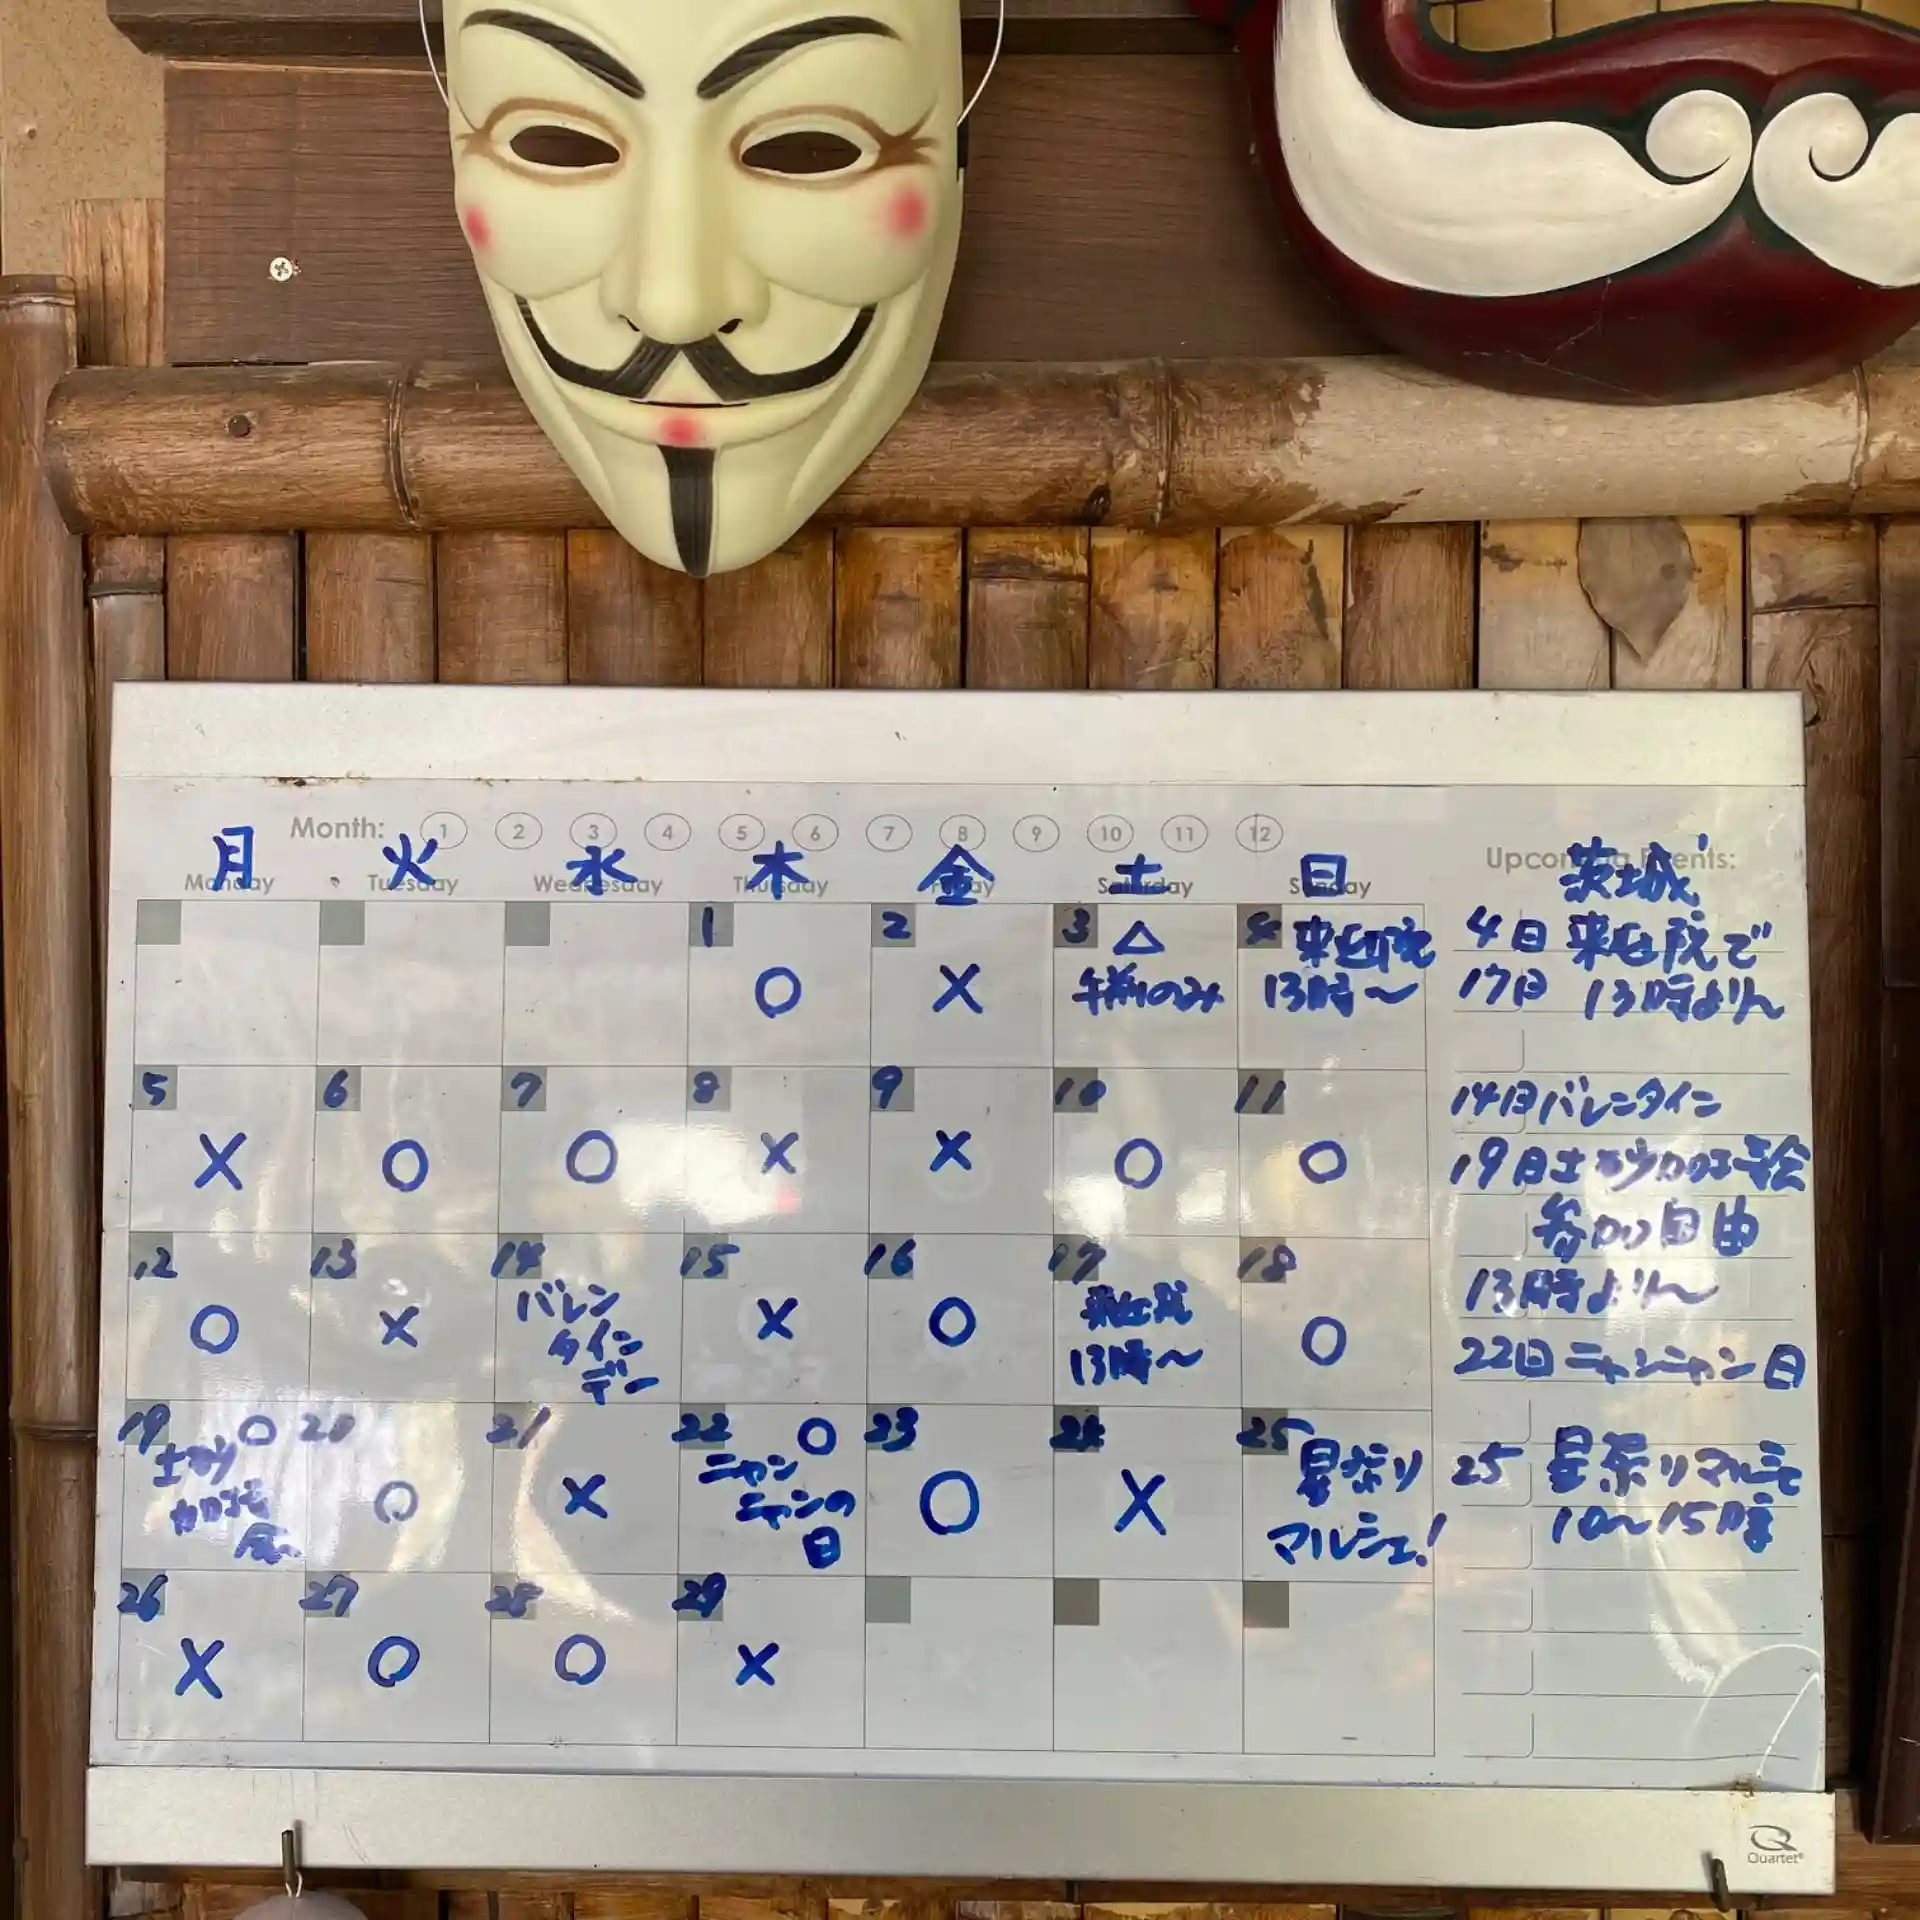 Month: 1 2 3 4 5 6 7 8 9 10 11 12
月 火 水 木 金 土 日
Monday Tuesday Wednesday Thursday Friday Saturday Sunday
1 2 3 △ 4 来迎院
○ × 午前のみ 13時〜
5 6 7 8 9 10 11
× ○ ○ × × ○ ○
12 13 14 15 16 17 18
○ × バレン タイン デー × ○ 来迎院 13時〜 ○
19 ○ 20 21 22 ○ 23 24 25 星祭り
土砂 加持 会 ○ × ニャン ニャンの 日 ○ × マルシェ!
26 27 28 29
× ○ ○ ×
Upcoming Events:
茨城
4日 来迎院で
17日 13時より〜
14日バレンタイン
19日土砂加持会
参加自由
13時より〜
22日ニャンニャン日
25 星祭りマルシェ
10〜15時
Quartet